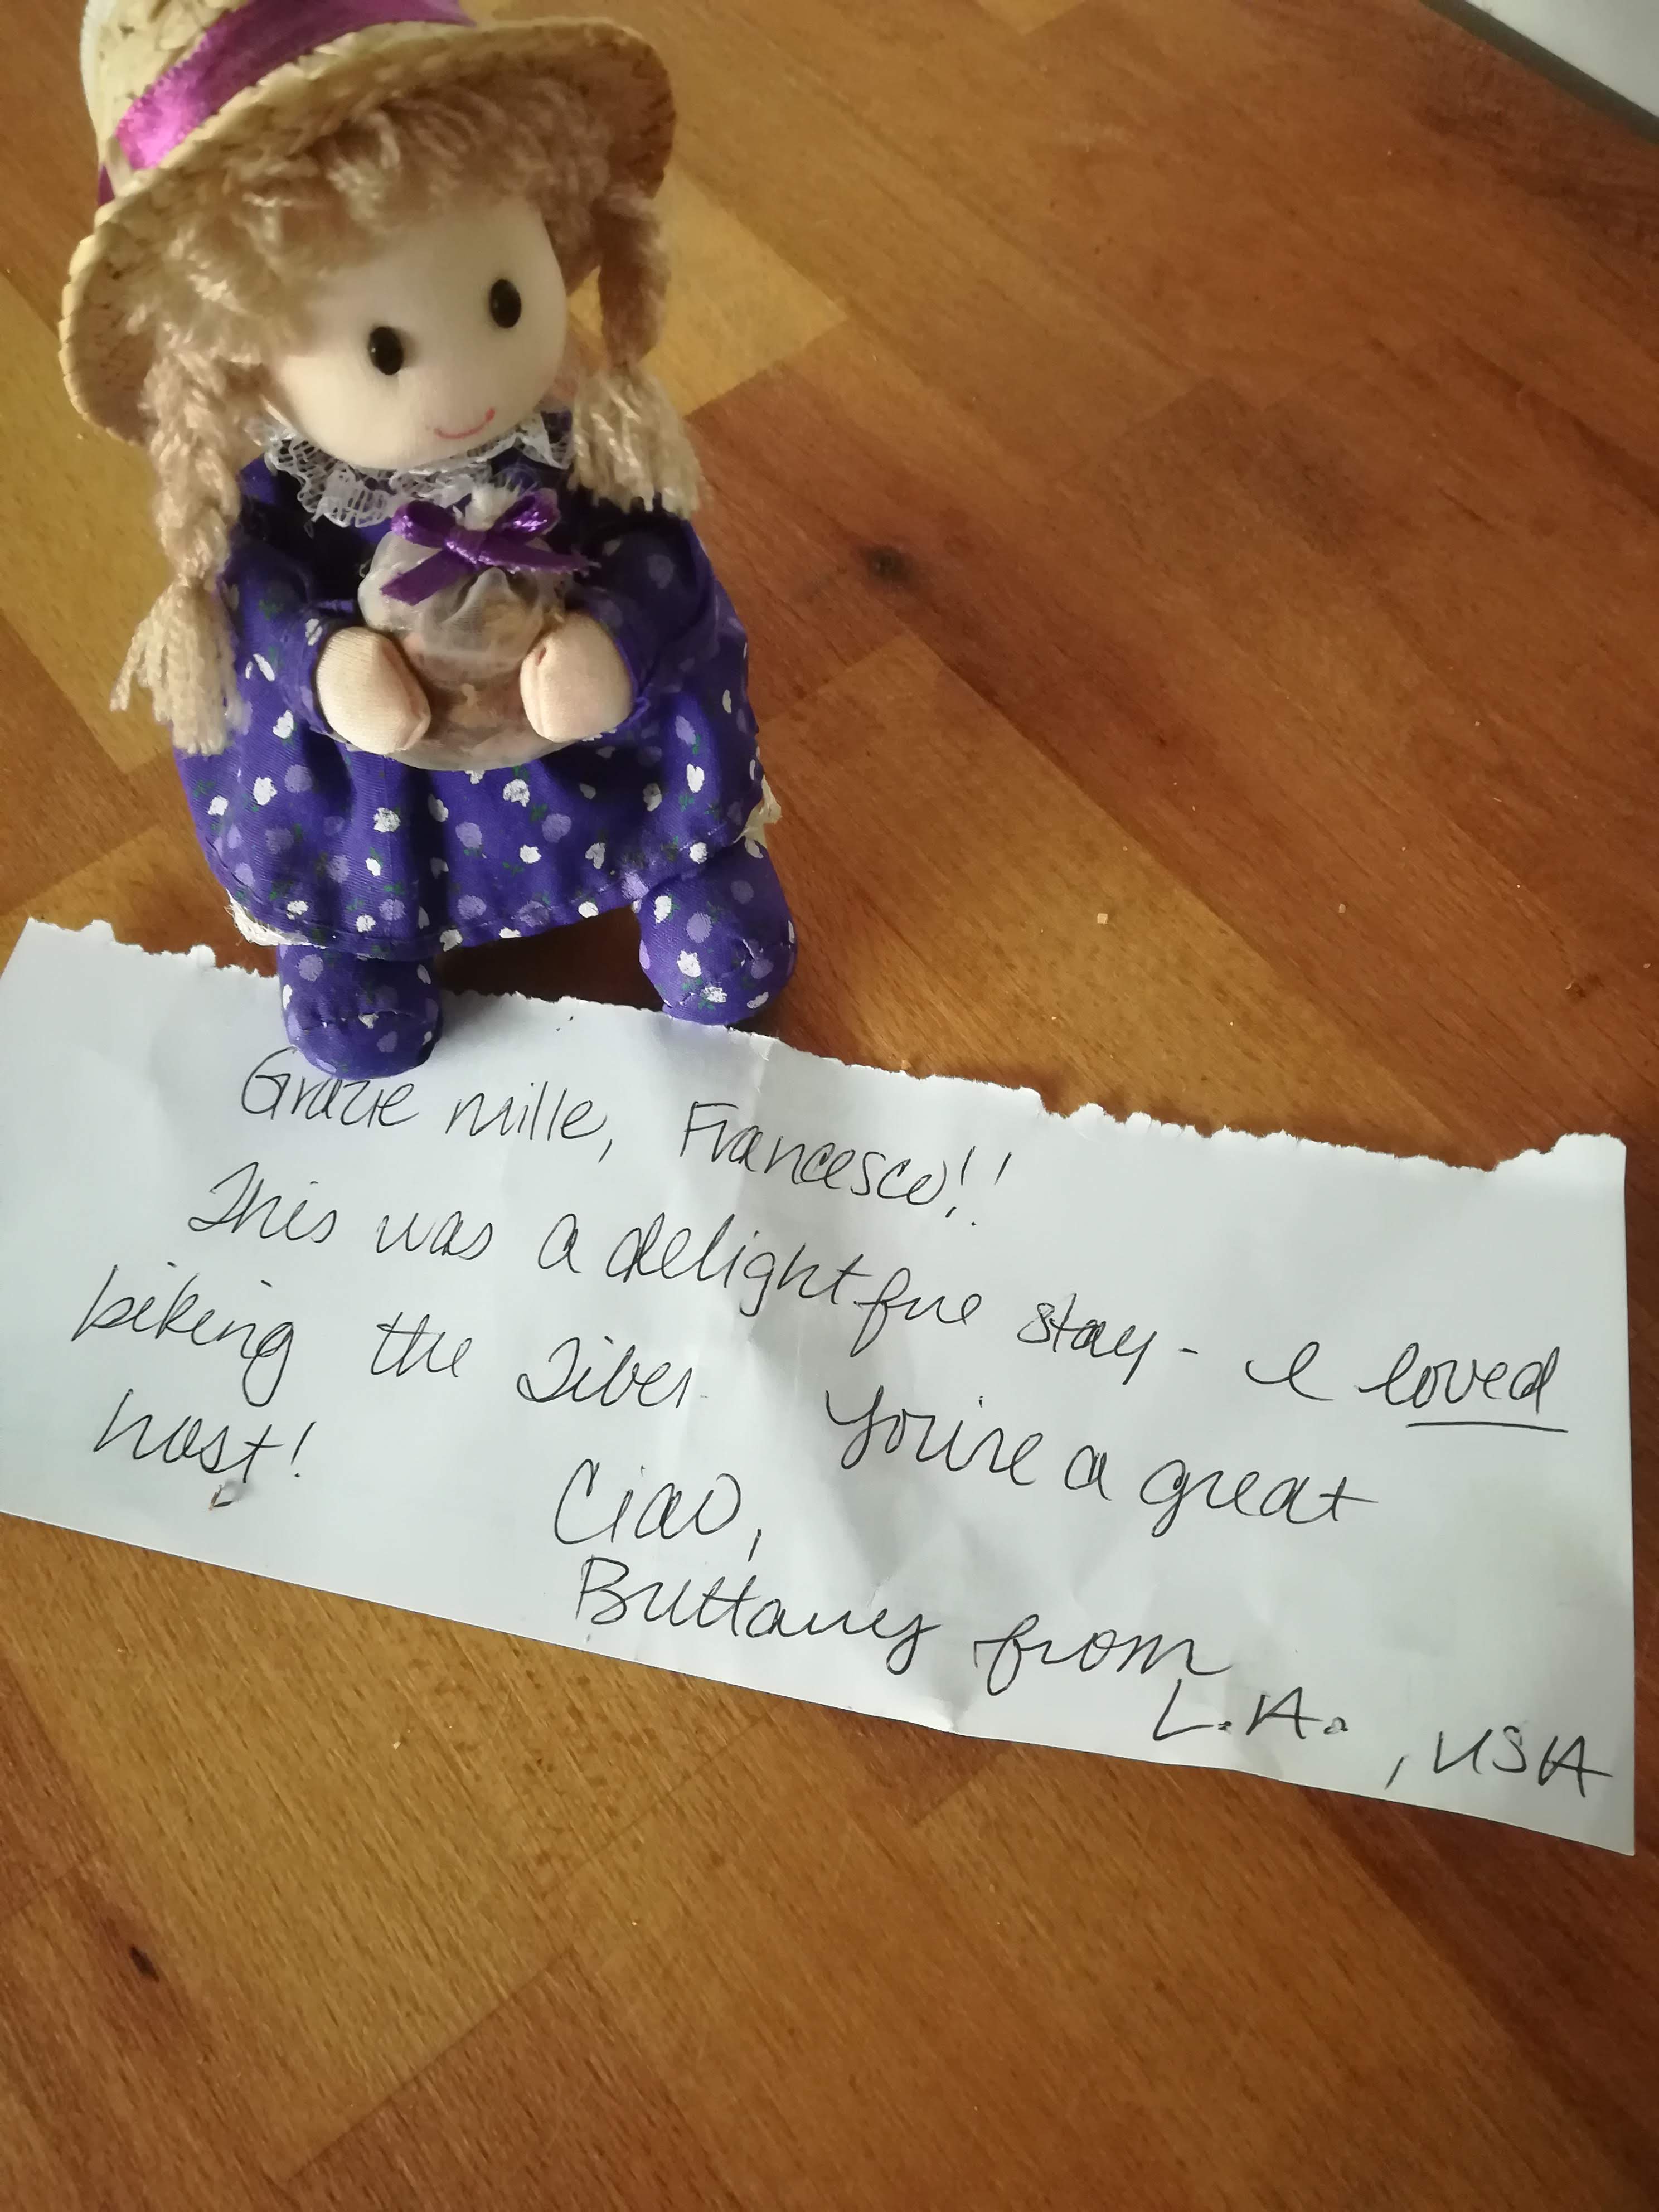 Grazie mille, Francesco!!
This was a delightful stay - I loved
biking the Tiber. You're a great
host!
Ciao,
Brittany from
L.A., USA